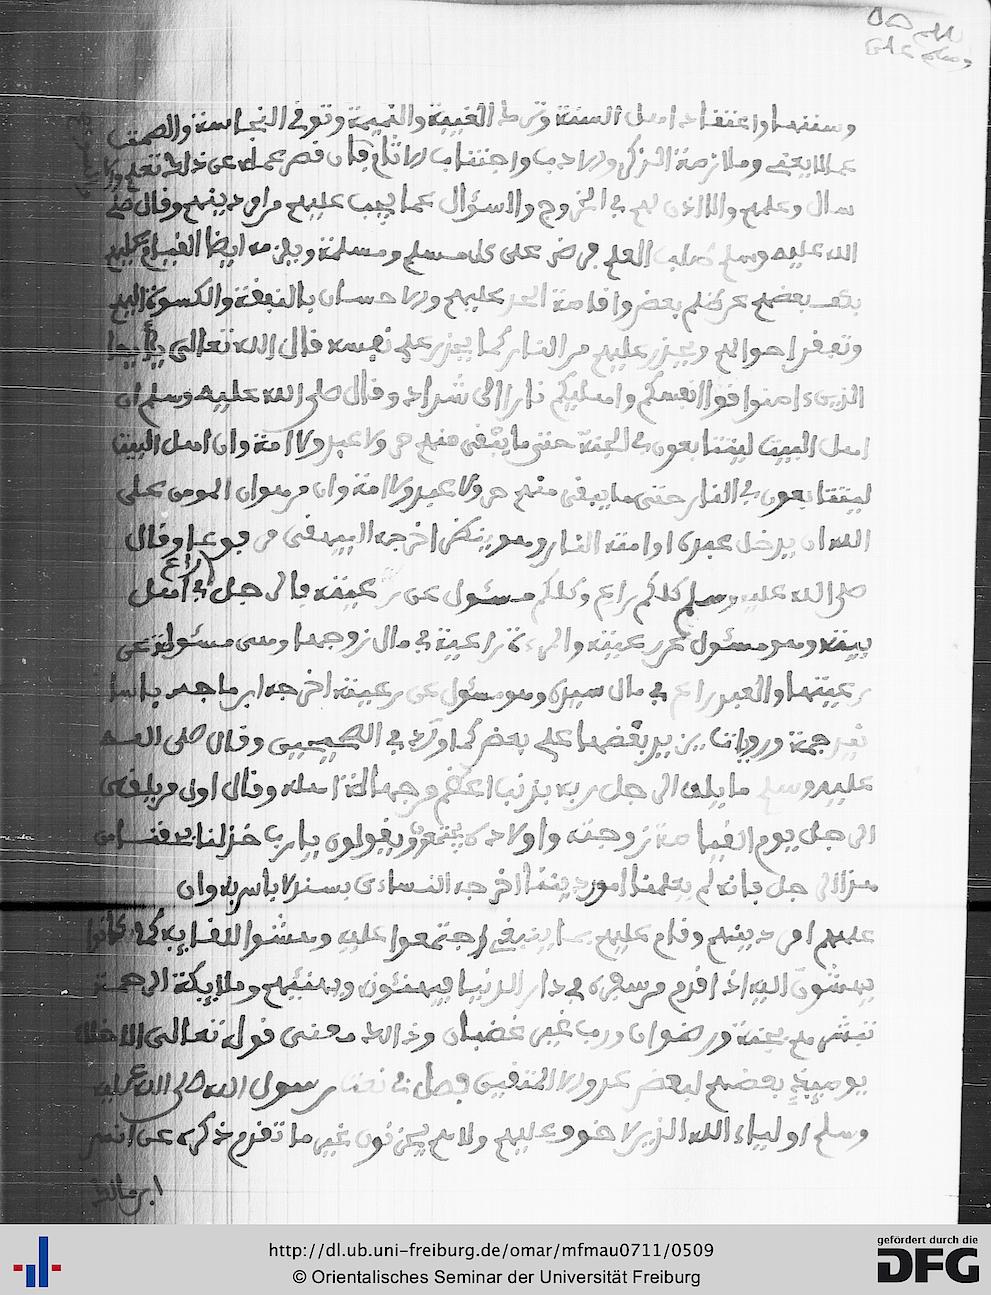 وسننها واعتقاد اهل السنة وترك الغيبة والنميمة وتوفي النجاسة والصمت
عما لا يعنى وملازمة الذكر والادب واجتناب الاثام فان قصر عمله عن ذلك تعلم
سال وعلمهم والاذن لهم في الخروج والسؤال عما يجب عليهم من امر دينهم وقال صلى
الله عليه وسلم طلب العلم فرض على كل مسلم ومسلمة ويلزمه ايضا القيام عليهم
بكف بعضهم عن ظلم بعض واقامة الحد عليهم والاحسان بالنفقة والكسوة اليهم
وتفقد احوالهم ويحذر عليهم من النار كما يحذر على نفسه قال الله تعالى يأيها
الذين ءامنوا قوا انفسكم واهليكم نارا الى شداد وقال صلى الله عليه وسلم ان
اهل البيت ليتتابعون في الجنة حتى ما يبقى منهم حر ولا عبد ولا امة وان اهل البيت
ليتتابعون في النار حتى ما يبقى منهم حر ولا عبد ولا امة وان من هوان المومن على
الله ان يدخل عبدى او امته النار وهو ينظر اخرجه البيهقى وقال
صلى الله عليه وسلم كلكم راع وكلكم مسئول عن رعيته فالرجل راع في اهل
بيته وهو مسئول عن رعيته والمرءة راعية في مال زوجها وهى مسئولة عن
رعيتها والعبد راع في مال سيده وهو مسئول عن رعيته اخرجه ابن ماجه
ورويانا يزيد بعضها على بعض كما ورد في الصحيحين وقال صلى الله
عليه وسلم ما يلقى الرجل ربه بذنب اعظم من جهالة اهله وقال اول من يلقى
الرجل يوم القيامة زوجته واولاده فيقولون يا رب خذ لنا بحقنا من
هذا الرجل فانه لم يعلمنا امور ديننا اخرجه النساءى بسند لا باس به وان
علمهم امر دينهم وقام عليهم بما ينبغى اجتمعوا عليه وهشوا للقايه كما كانوا
يهشون اليه اذا قدم من سفره في دار الدنيا فيهنئون ويهنئهم وملايكة الرحمة
تبشرهم بجنة ورضوان ورب غير غضبان وذالك معنى قوله تعالى الاخلاء
يوميذ بعضهم لبعض عدو الا المتقين فصل في نعت رسول الله صلى الله عليه
وسلم اولياء الله الذين لا خوف عليهم ولا هم يحزنون غير ما تقدم ذكره عن انس
ابن مالك
http://dl.ub.uni-freiburg.de/omar/mfmau0711/0509
© Orientalisches Seminar der Universität Freiburg
gefördert durch die
DFG